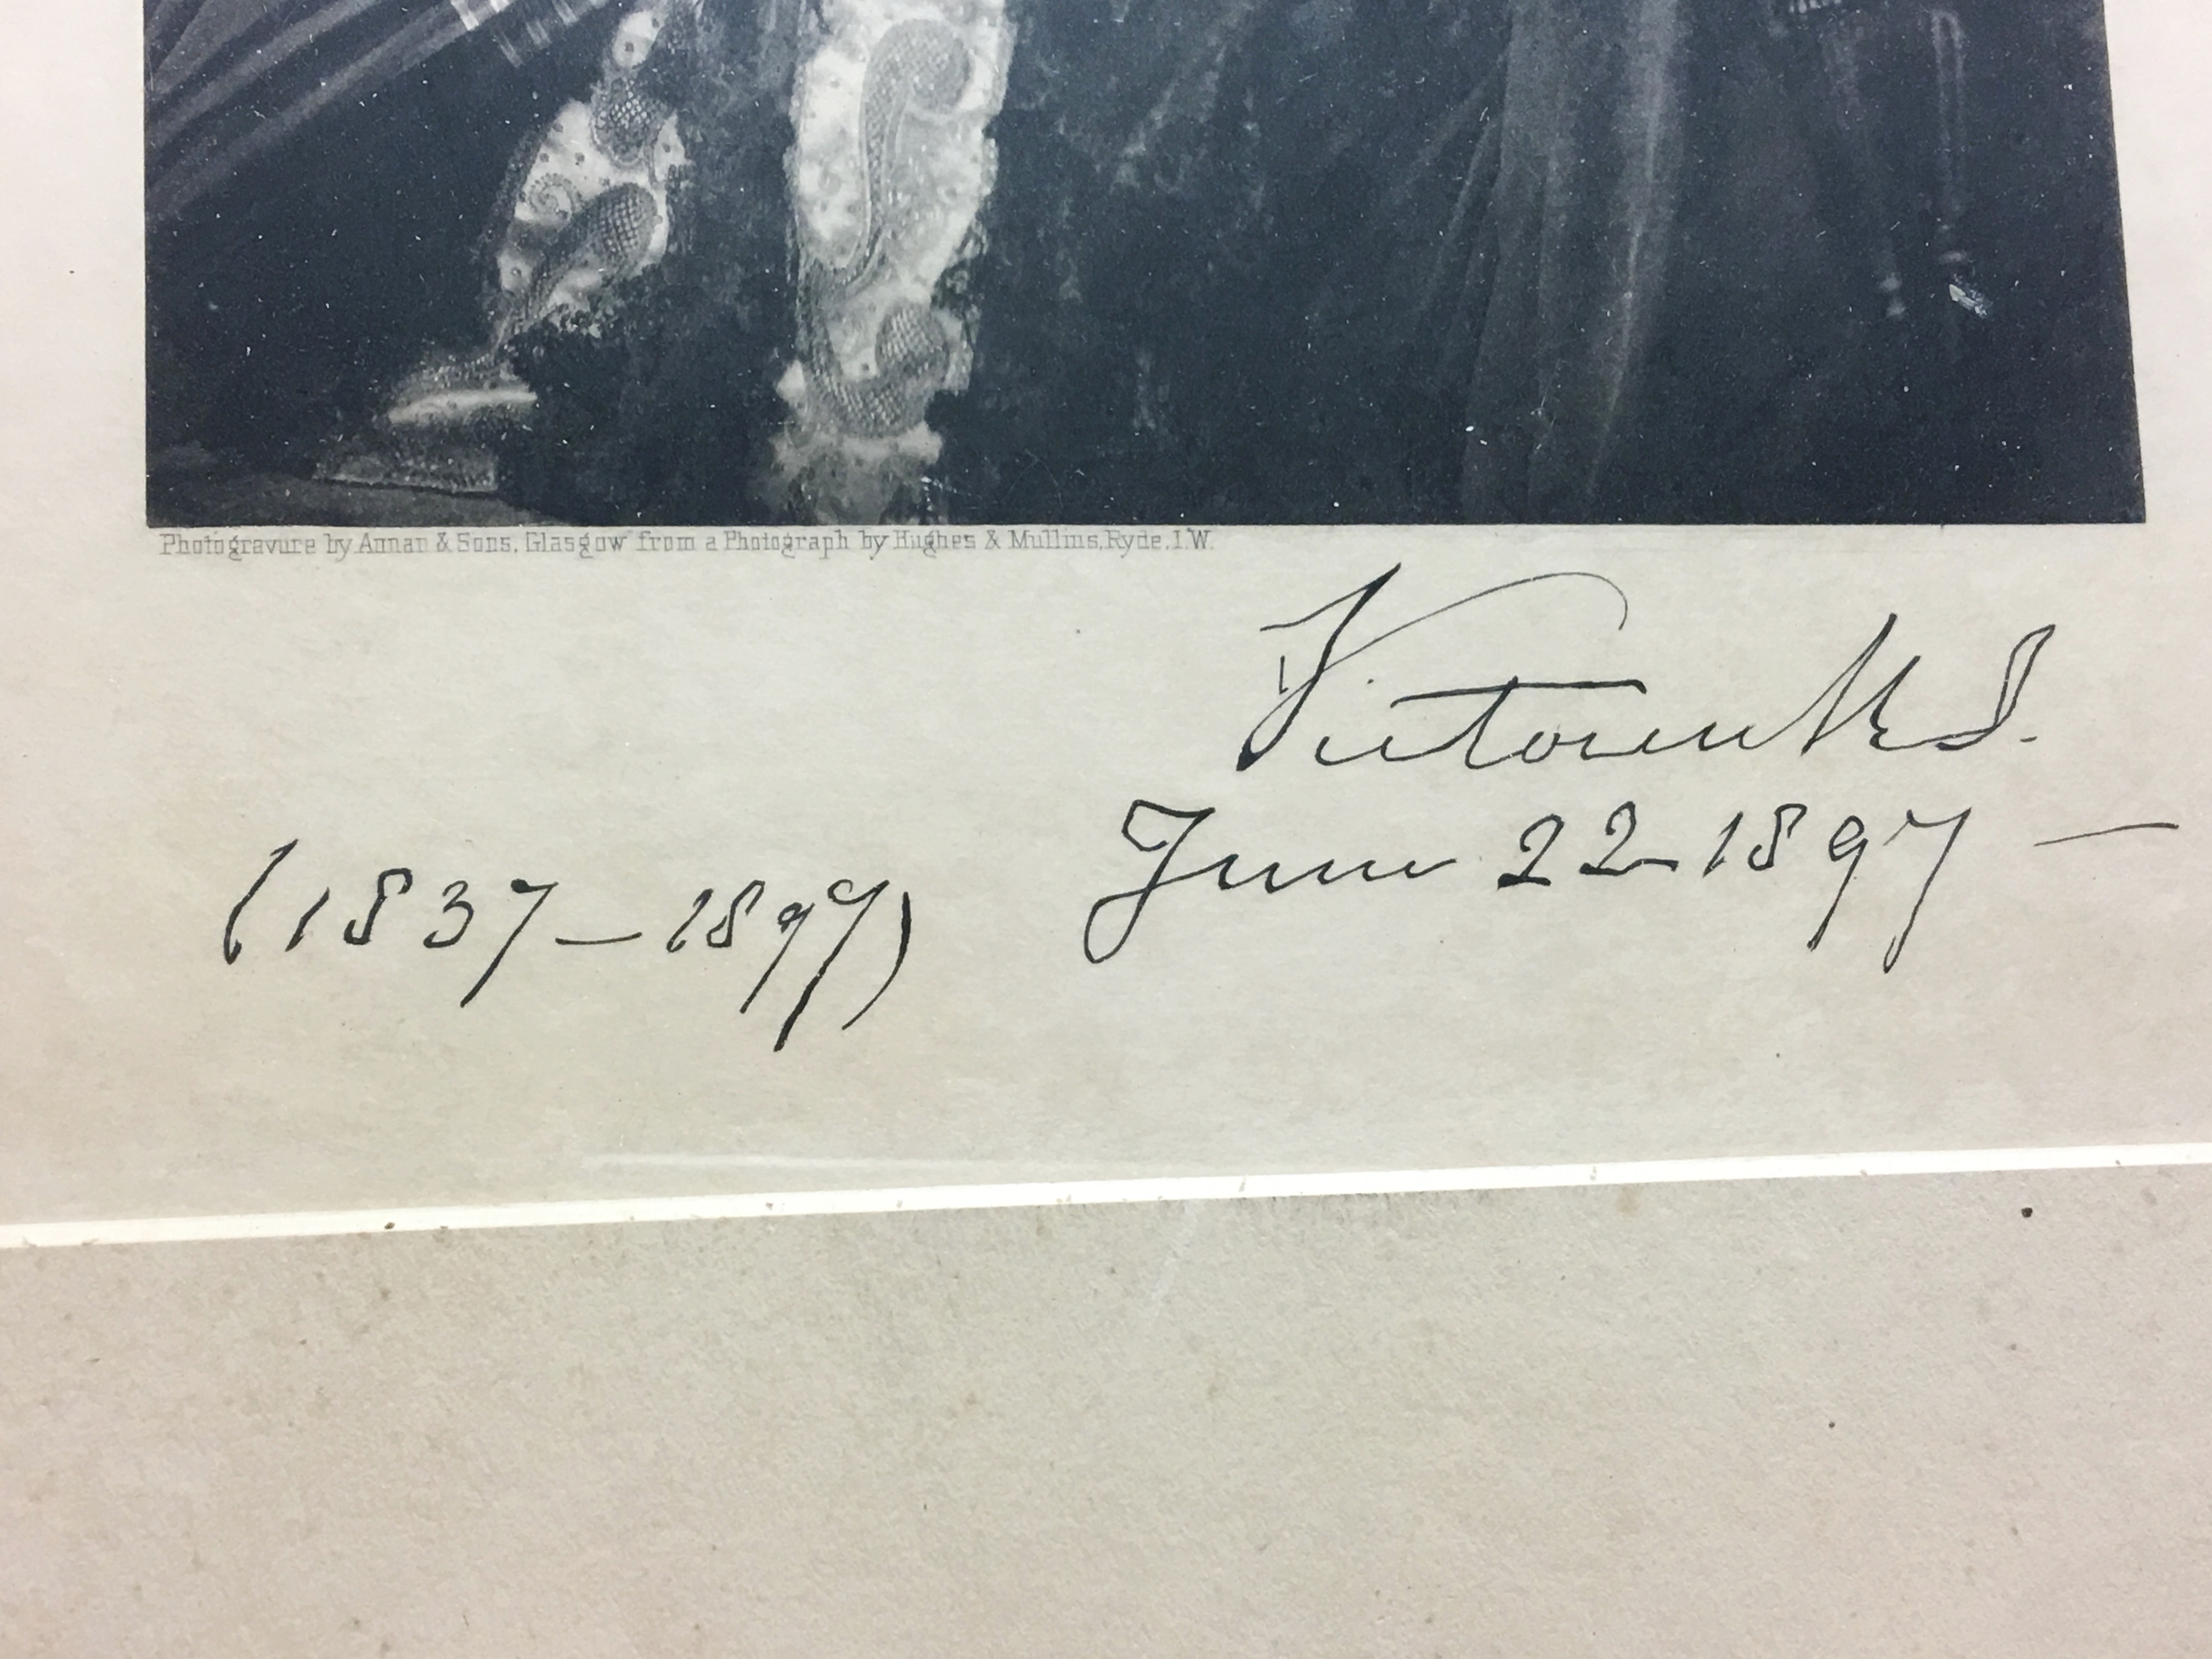 Photogravure by Annan & Sons, Glasgow from a Photograph by Hughes & Mullins, Ryde, I.W.
Victoria R I.
June 22 1897 —
(1837 — 1897)